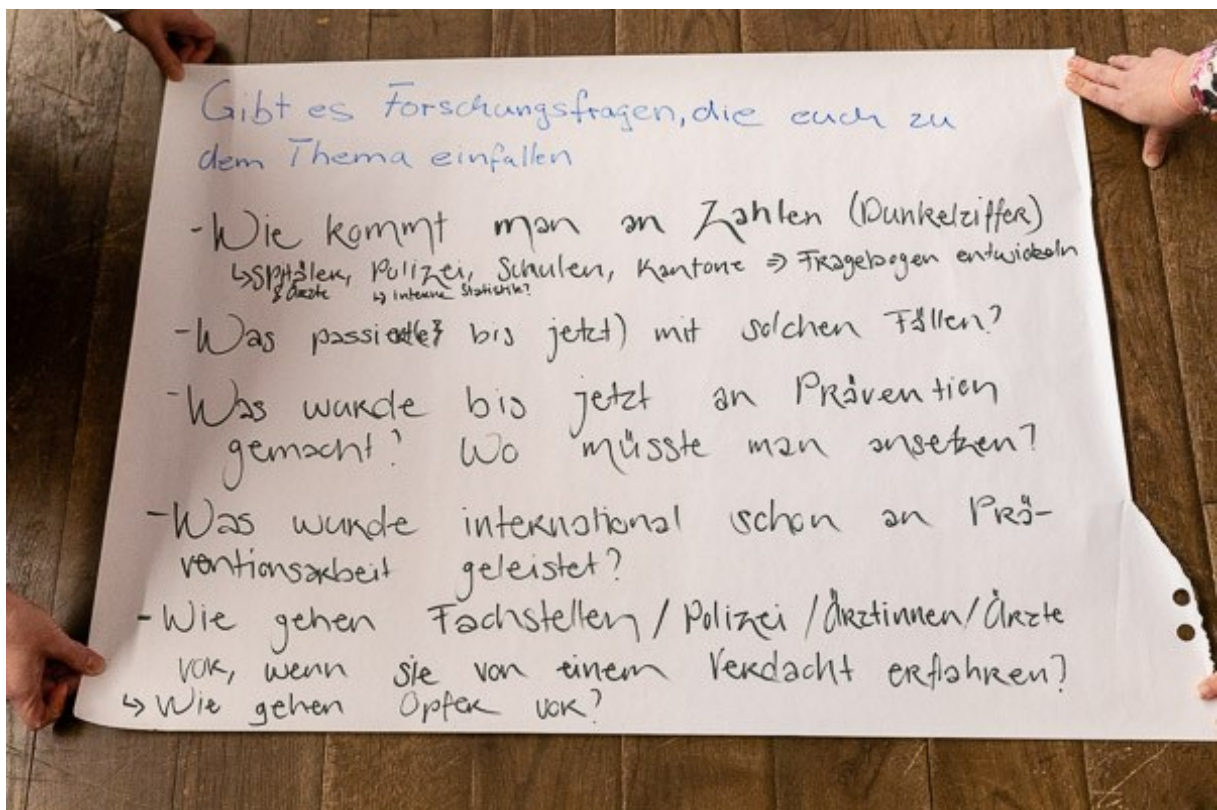 Gibt es Forschungsfragen, die euch zu
dem Thema einfallen
- Wie kommt man an Zahlen (Dunkelziffer)
↳ Spitäler, Polizei, Schulen, Kantone ⇒ Fragebogen entwickeln
& Ärzte ↳ interne Statistik?
- Was bis jetzt) mit solchen Fällen?
- Was wurde bis jetzt an Prävention
gemacht? Wo müsste man ansetzen?
- Was wurde international schon an Prä-
ventionsarbeit geleistet?
- Wie gehen Fachstellen / Polizei / Ärztinnen / Ärzte
vor, wenn sie von einem Verdacht erfahren?
↳ Wie gehen Opfer vor?